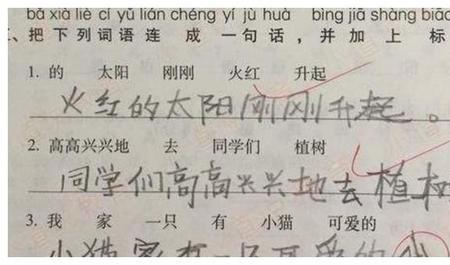 bǎ xià liè cí yǔ lián chéng yí jù huà bìng jiā shàng biāo
、把下列词语连 成 一句话，并加上 标
1. 的 太阳 刚刚 火红 升起
火红的太阳刚刚升起。
2. 高高兴兴地 去 同学们 植树
同学们高高兴兴地去植树
3. 我 家 一只 有 小猫 可爱的
小猫家有一只可爱的小